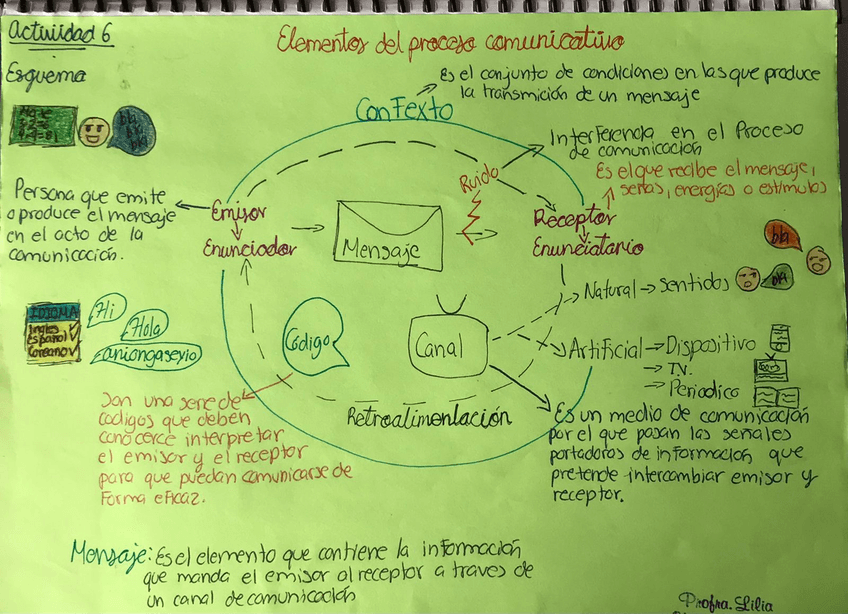 Actividad 6
Elementos del proceso comunicativo
Esquema
Es el conjunto de condiciones en las que produce
la transmición de un mensaje
Contexto
bla
bla
bla
Interferencia en el Proceso
de comunicación
Ruido
Es el que recibe el mensaje,
señas, energías o estimulos
Persona que emite
o produce el mensaje
en el acto de la
comunicación.
Emisor
Enunciador
Mensaje
Receptor
Enunciatario
bla
bla
Natural → Sentidos
IDIOMA
Ingles ✓
Español ✓
Coreano ✓
Hi
Hola
aniongaseyio
Código
Canal
Artificial → Dispositivo
→ TV.
→ Periodico
Son una serie de
codigos que deben
conocerce interpretar
el emisor y el receptor
para que puedan comunicarse de
forma eficaz.
Retroalimentación
Es un medio de comunicación
por el que pasan las señales
portadoras de información que
pretende intercambiar emisor y
receptor.
Mensaje: Es el elemento que contiene la información
que manda el emisor al receptor a traves de
un canal de comunicación
Profra. Lilia